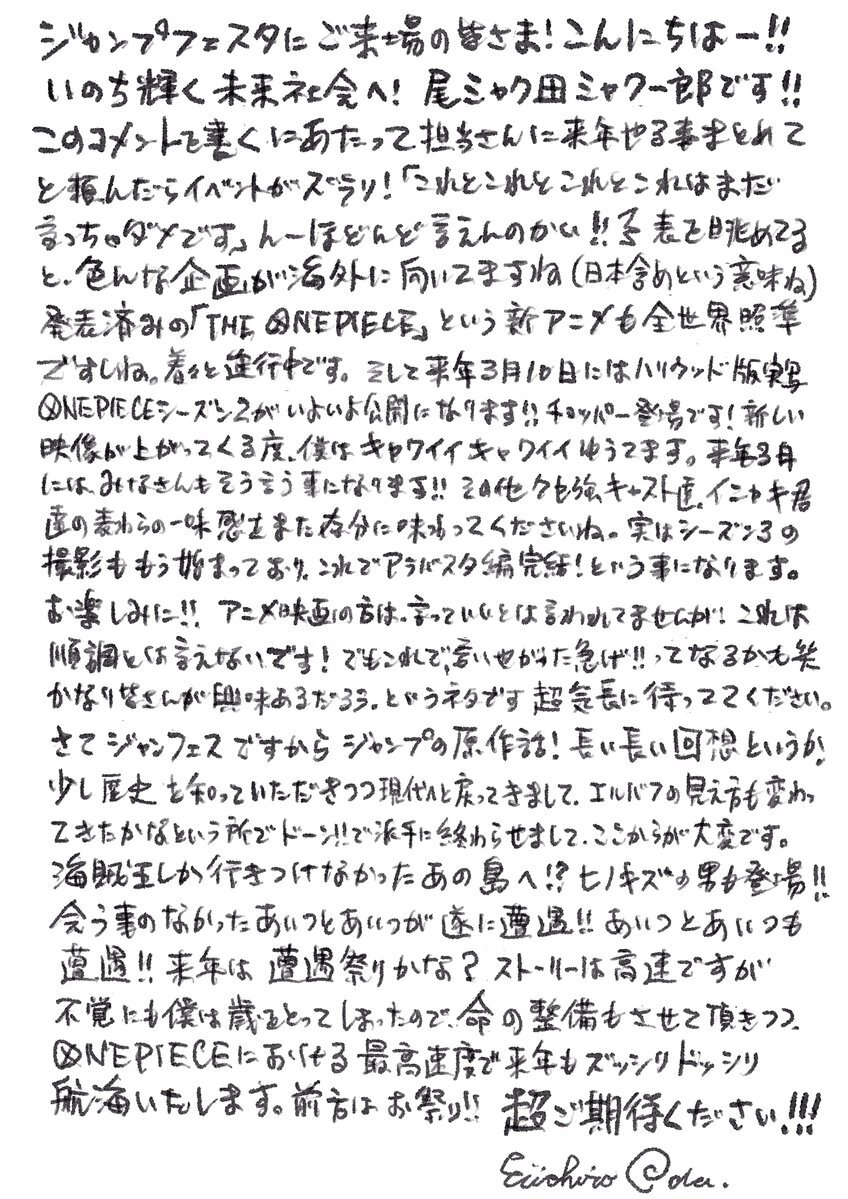 ジャンプフェスタにご来場の皆さま!こんにちはー!!
いのち輝く未来社会へ! 尾ミャク田ミャク一郎です!!
このコメントを書くにあたって担当さんに来年やる事まとめて
と頼んだらイベントがズラリ!「これとこれとこれとこれはまだ
言っちゃダメです」んーほどんど言えんのかい!!予表を眺めてる
と、色んな企画が海外に向いてますね(日本含めという意味ね)
発表済みの「THE ONE PIECE」という新アニメも全世界照準
ですしね。着々と進行中です。そして来年3月10日にはハリウッド版実写
ONE PIECEシーズン2がいよいよ公開になります!!チョッパー登場です!新しい
映像が上がってくる度、僕はキャワイイキャワイイゆうてます。来年3月
には、みなさんもそう言う事になります!!その他クセ強キャスト達、イニャキ君
達の麦わらの一味感もまた存分に味わってくださいね。実はシーズン3の
撮影ももう始まっており、これでアラバスタ編完結!という事になります。
お楽しみに!! アニメ映画の方は、言っていいとは言われてませんが!これは
順調とは言えないです!でもこれで、言いやがった急げ!!ってなるかも笑
かなり皆さんが興味あるだろう、というネタです 超気長に待っててください。
さてジャンフェスですからジャンプの原作話!長い長い回想というか、
少し歴史を知っていただきつつ現代へと戻ってきまして、エルバフの見え方も変わっ
てきたかなという所でドーン!!で派手に終わらせまして、ここからが大変です。
海賊王しか行きつけなかったあの島へ!?ヒノキズの男も登場!!
会う事のなかったあいつとあいつが遂に遭遇!!あいつとあいつも
遭遇!!来年は遭遇祭りかな?ストーリーは高速ですが
不覚にも僕は歳をとってしまったので、命の整備もさせて頂きつつ、
ONE PIECEにおける最高速度で来年もズッシリドッシリ
航海いたします。前方はお祭り!! 超ご期待ください!!!
Eiichiro Oda.